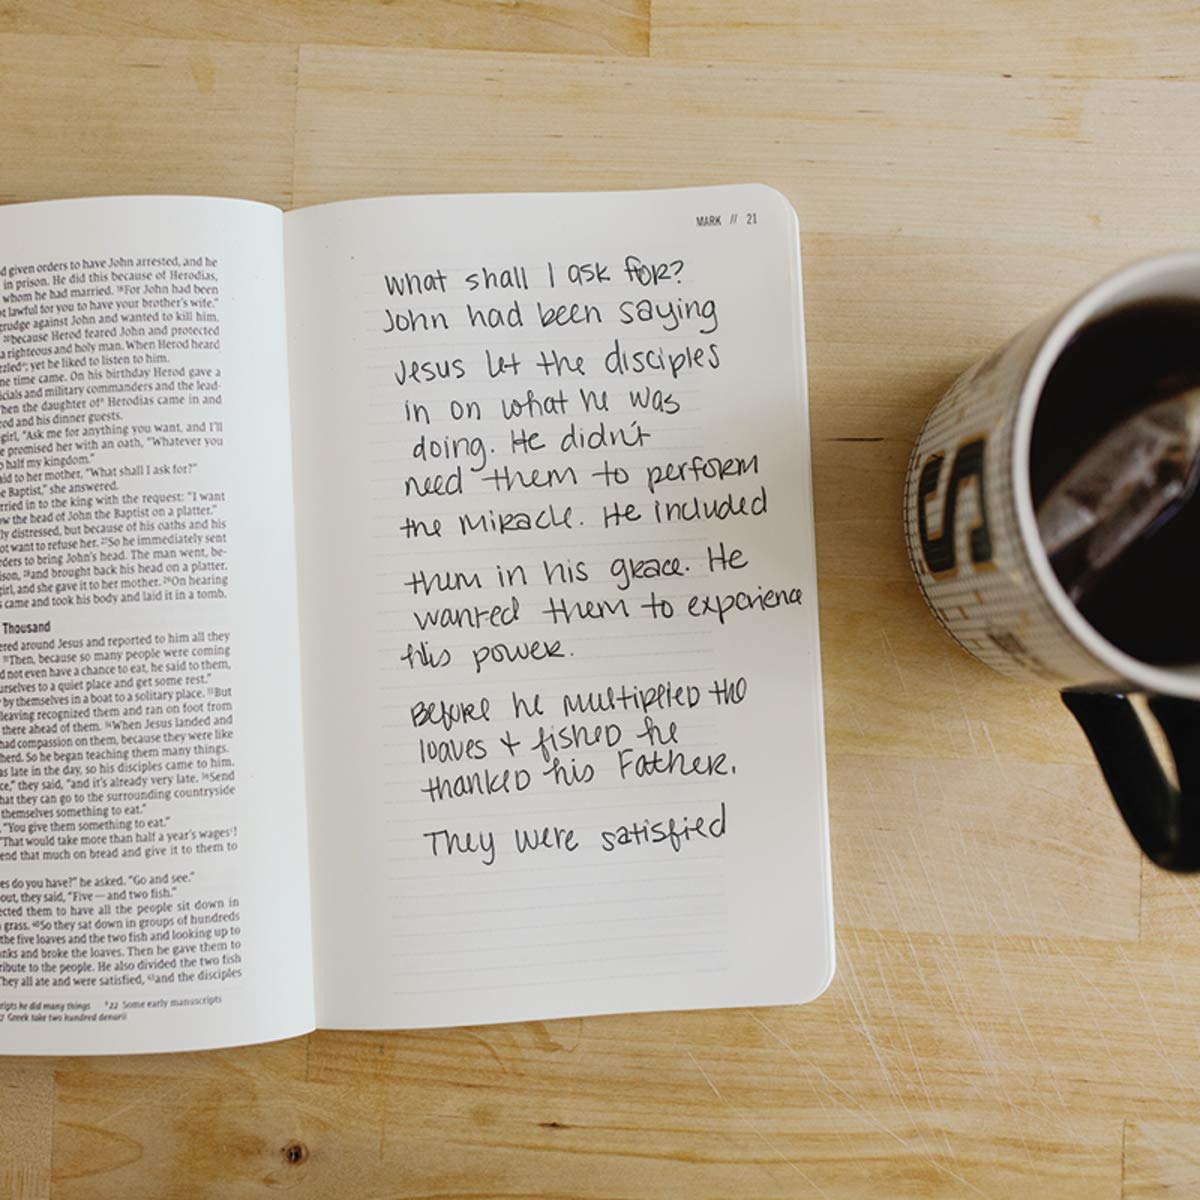 d given orders to have John arrested, and he
in prison. He did this because of Herodias,
whom he had married. ¹⁸For John had been
t lawful for you to have your brother's wife."
grudge against John and wanted to kill him,
²⁰because Herod feared John and protected
a righteous and holy man. When Herod heard
zzled; yet he liked to listen to him.
ne time came. On his birthday Herod gave a
icials and military commanders and the lead-
hen the daughter of Herodias came in and
od and his dinner guests.
girl, "Ask me for anything you want, and I'll
e promised her with an oath, "Whatever you
o half my kingdom."
aid to her mother, "What shall I ask for?"
e Baptist," she answered.
rried in to the king with the request: "I want
w the head of John the Baptist on a platter."
ly distressed, but because of his oaths and his
ot want to refuse her. ²⁷So he immediately sent
rders to bring John's head. The man went, be-
ison, ²⁸and brought back his head on a platter.
girl, and she gave it to her mother. ²⁹On hearing
s came and took his body and laid it in a tomb.
Thousand
ered around Jesus and reported to him all they
³¹Then, because so many people were coming
d not even have a chance to eat, he said to them,
urselves to a quiet place and get some rest."
by themselves in a boat to a solitary place. ³³But
leaving recognized them and ran on foot from
there ahead of them. ³⁴When Jesus landed and
had compassion on them, because they were like
herd. So he began teaching them many things.
as late in the day, so his disciples came to him.
ce," they said, "and it's already very late. ³⁶Send
hat they can go to the surrounding countryside
themselves something to eat."
"You give them something to eat."
"That would take more than half a year's wages!
end that much on bread and give it to them to
es do you have?" he asked. "Go and see."
out, they said, "Five—and two fish."
ected them to have all the people sit down in
grass. ⁴⁰So they sat down in groups of hundreds
the five loaves and the two fish and looking up to
nks and broke the loaves. Then he gave them to
ribute to the people. He also divided the two fish
hey all ate and were satisfied, ⁴³and the disciples
ripts he did many things 22 Some early manuscripts
7 Greek take two hundred denarii
MARK // 21
What shall I ask for?
John had been saying
Jesus let the disciples
in on what he was
doing. He didn't
need them to perform
the miracle. He included
them in his grace. He
wanted them to experience
his power.
Before he multiplied the
loaves + fished he
thanked his Father.
They were satisfied
S